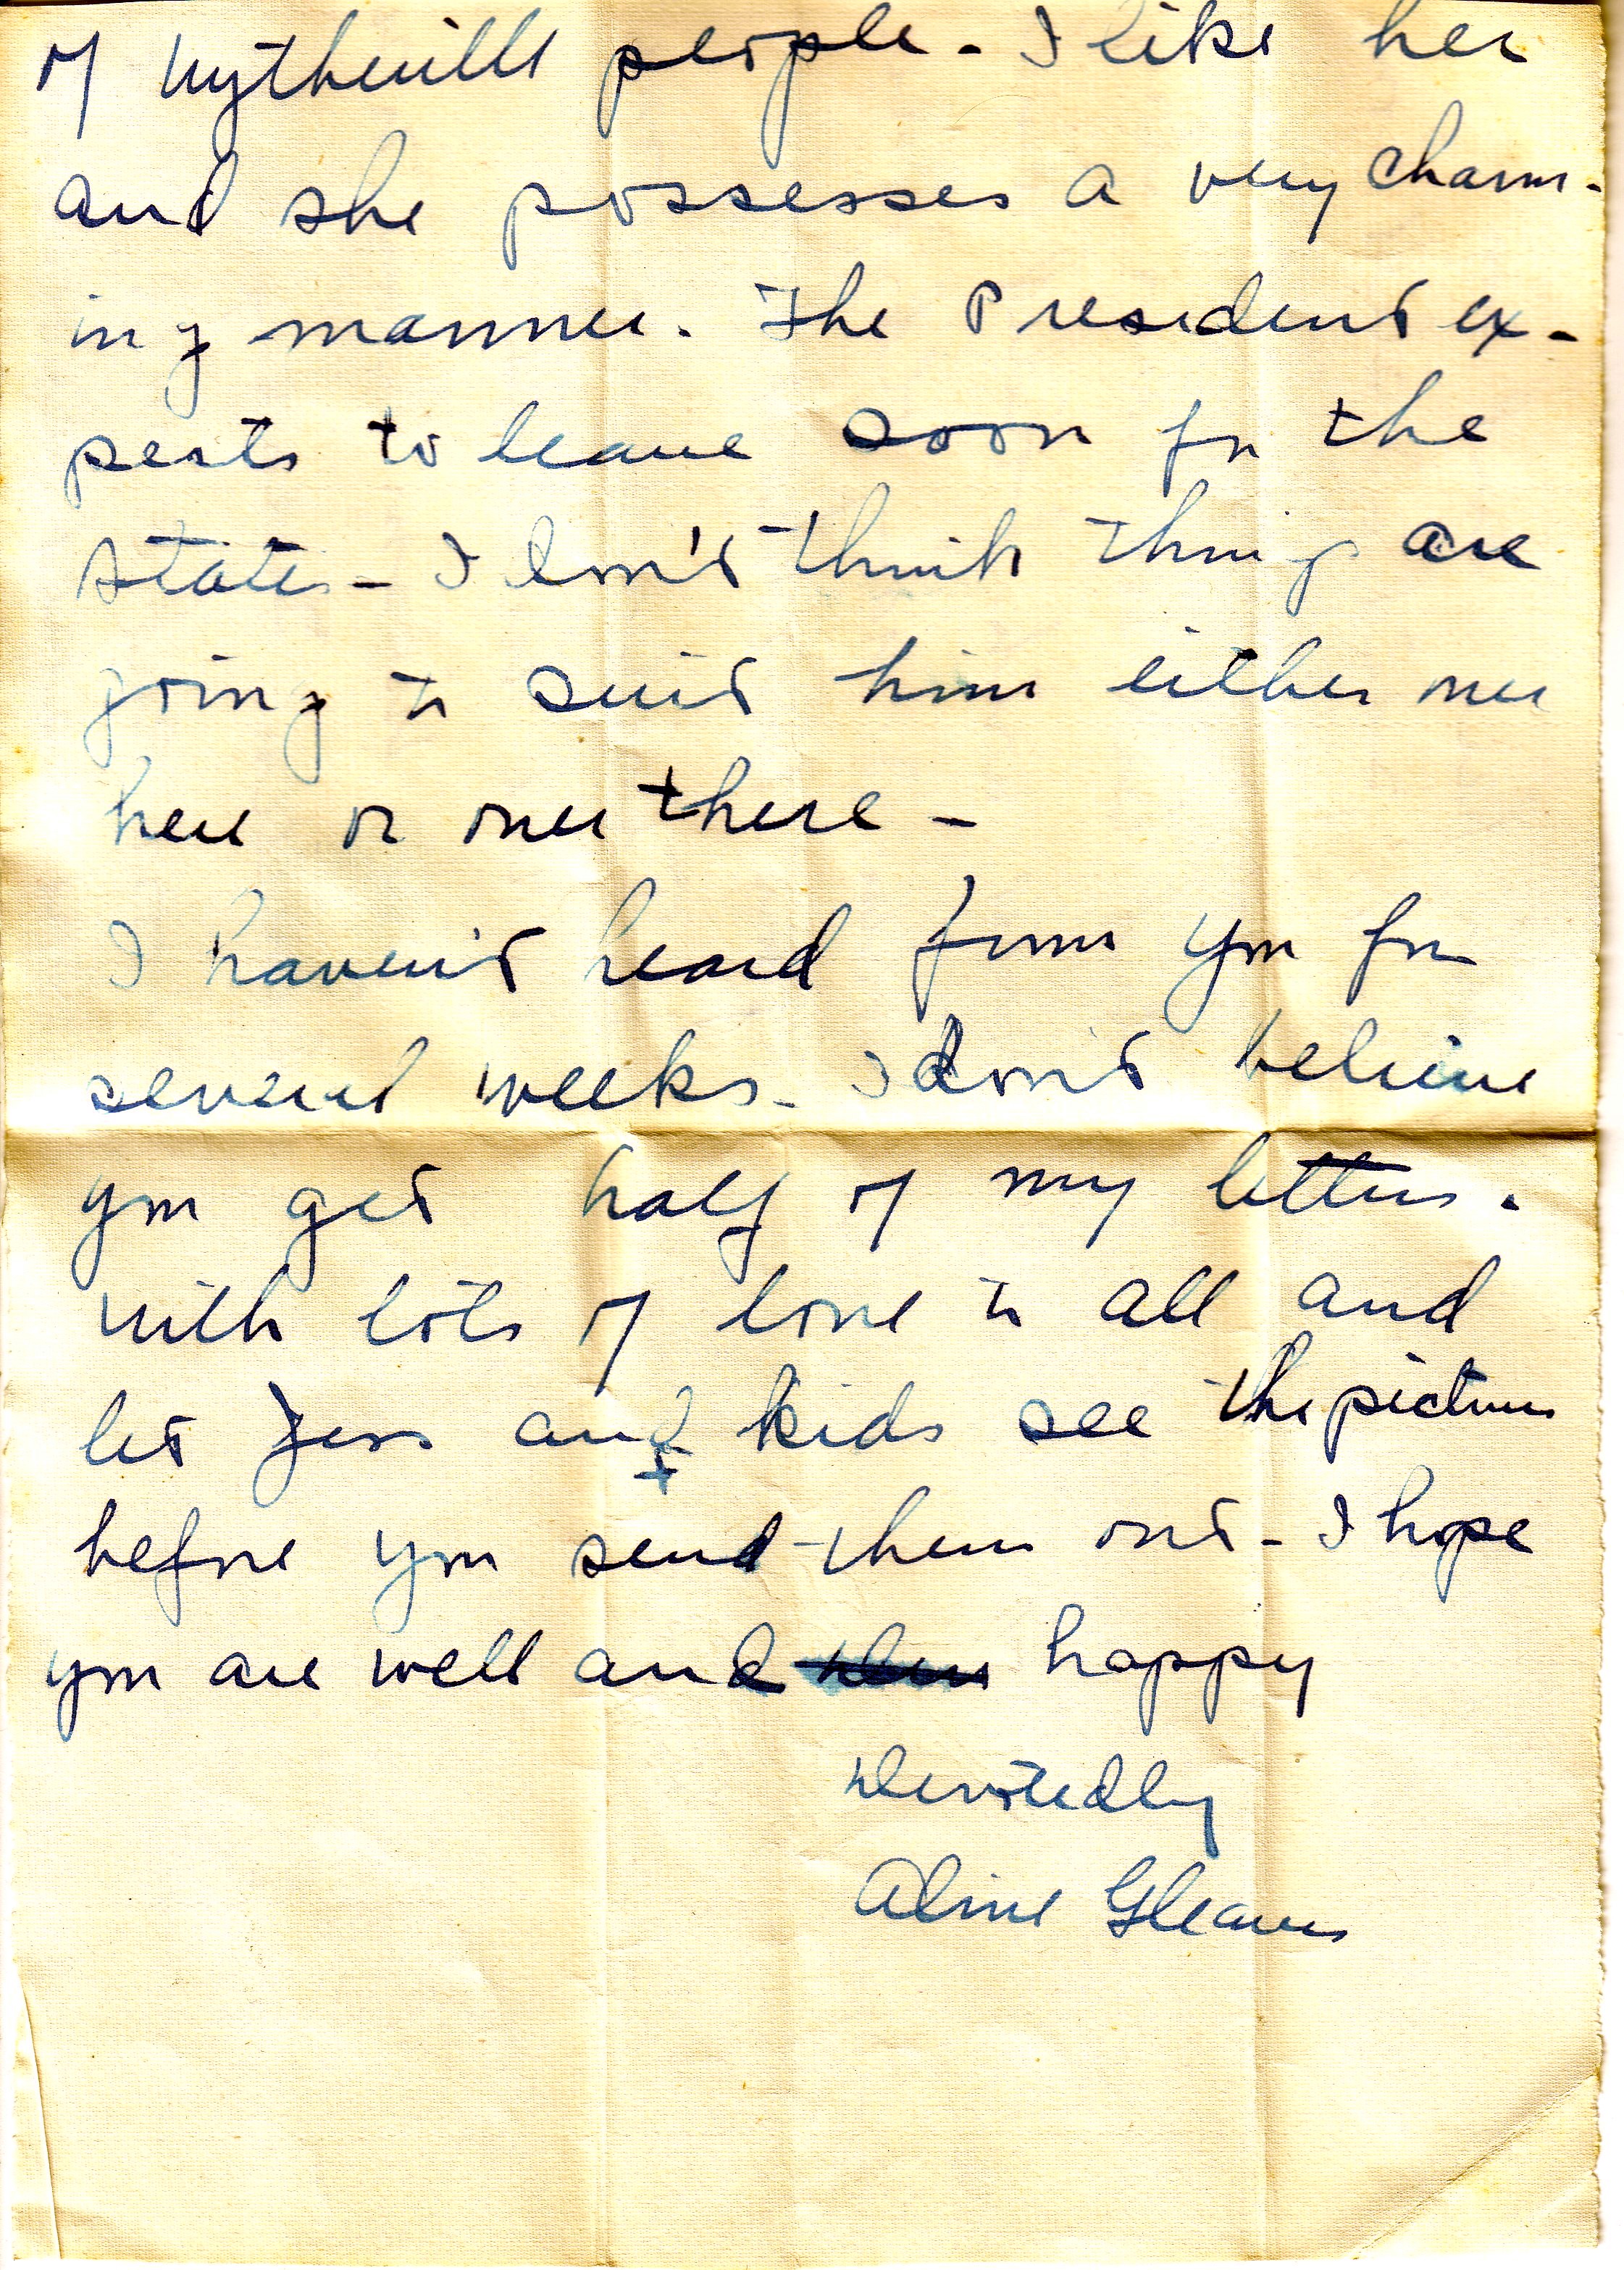 of Wytheville people - I like her
and she possesses a very charm-
ing manner. The President ex-
pects to leave soon for the
States - I don't think things are
going to suit him either over
here or over there -
I haven't heard from you for
several weeks - I don't believe
you get half of my letters.
With lots of love to all and
let Jess and kids see the pictures
before you send them out - I hope
you are well and happy
Devotedly
Aline Gleaves